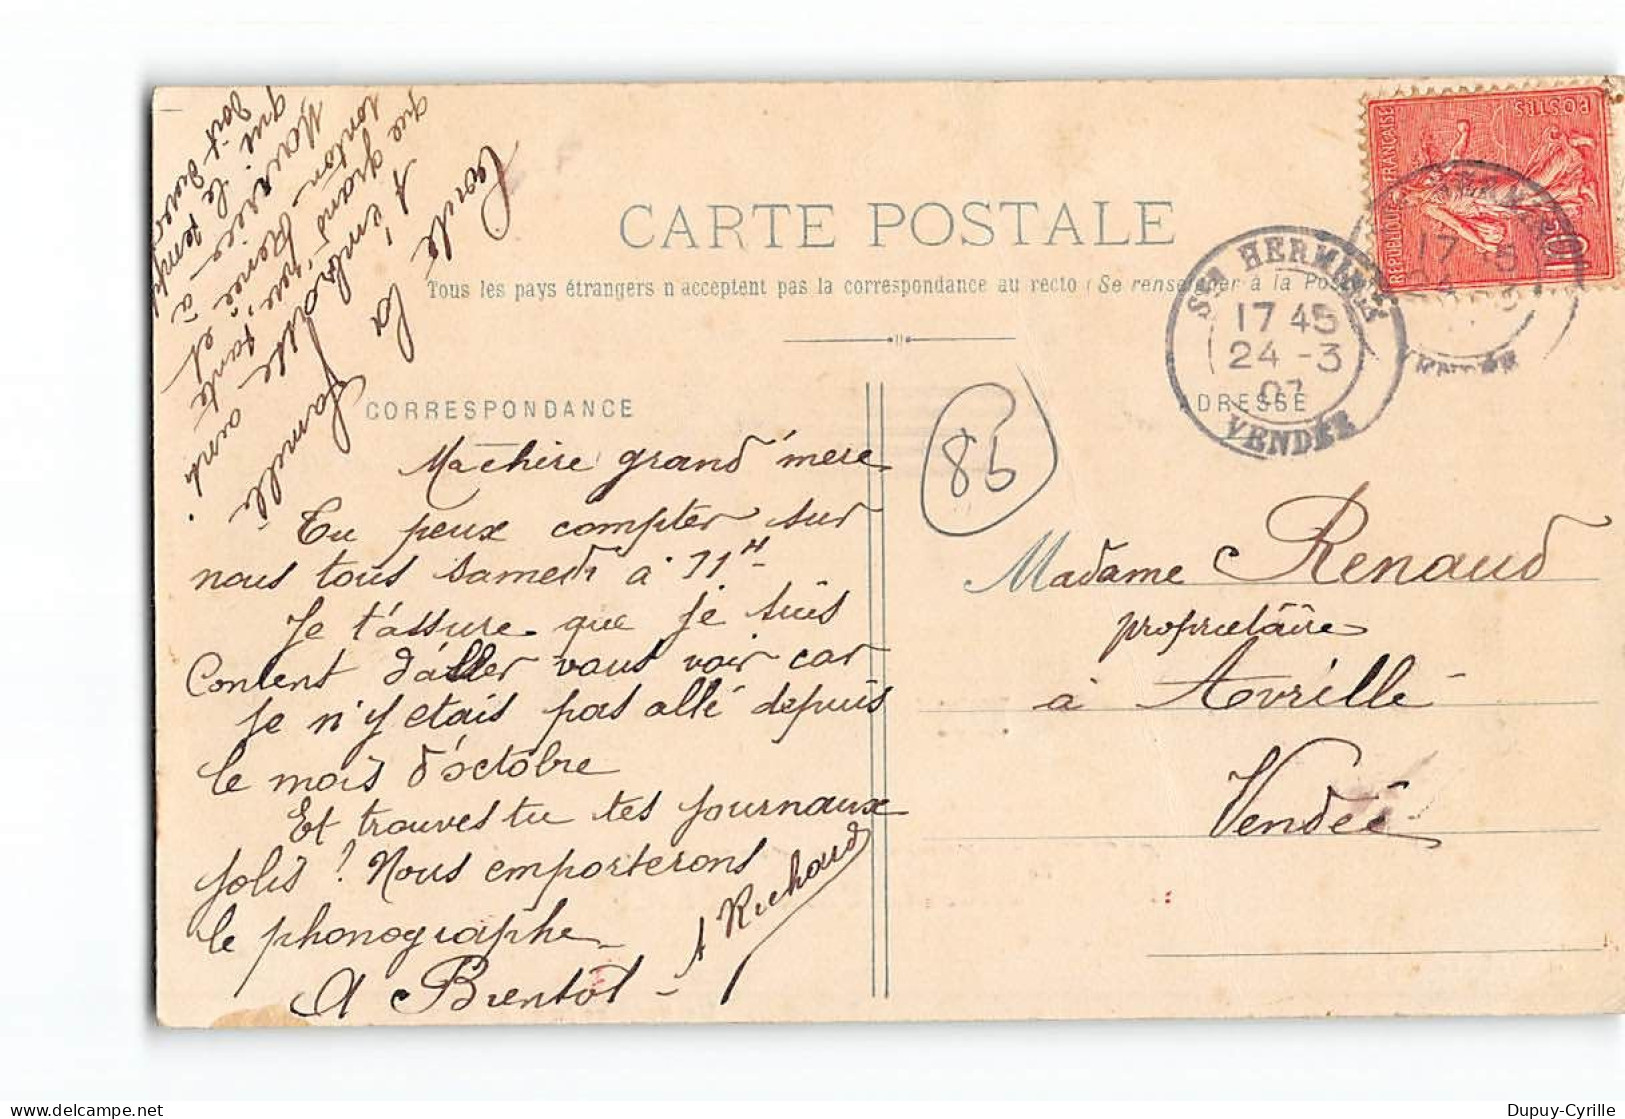 CARTE POSTALE
Tous les pays étrangers n'acceptent pas la correspondance au recto (Se renseigner à la Poste)
CORRESPONDANCE
ADRESSE
REPUBLIQUE FRANÇAISE
POSTES
10
STE HERMINE
17 45
24 - 3
07
VENDÉE
17 45
24 3
VENDÉE
85
Ma chère grand'mère
Tu peux compter sur
nous tous Samedi à 11H
Je t'assure que je suis
Content d'aller vous voir car
je n'y étais pas allé depuis
le mois d'octobre
Et trouves tu tes journaux
jolis ? Nous emporterons
le phonographe
A Bientôt
A Richaud
Toute la famille
t'embrasse ainsi
que grand père, tante
tonton René et
Maurice à
qui le temps
doit durer
Madame Renaud
propriétaire
à Avrillé
Vendée
Dupuy-Cyrille